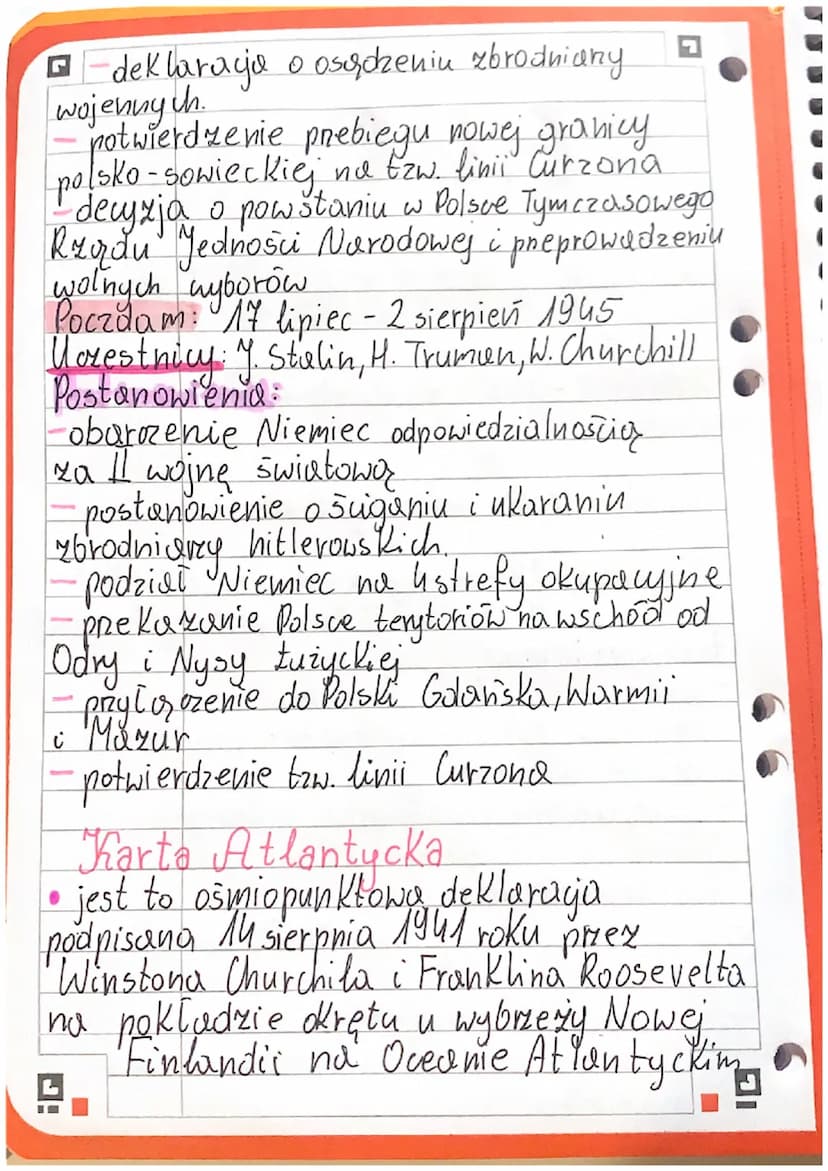 - deklaracja o osądzeniu zbrodniarzy
wojennych.
- potwierdzenie przebiegu nowej granicy
polsko-sowieckiej na tzw. linii Curzona
- decyzja o powstaniu w Polsce Tymczasowego
Rządu Jedności Narodowej i przeprowadzeniu
wolnych wyborów
Poczdam: 17 lipiec - 2 sierpień 1945
Uczestnicy: J. Stalin, H. Truman, W. Churchill
Postanowienia:
- obarczenie Niemiec odpowiedzialnością
za II wojnę światową
- postanowienie o ściganiu i ukaraniu
zbrodniarzy hitlerowskich.
- podział Niemiec na 4 strefy okupacyjne
- przekazanie Polsce terytoriów na wschód od
Odry i Nysy Łużyckiej
- przyłączenie do Polski Gdańska, Warmii
i Mazur
- potwierdzenie tzw. linii Curzona
Karta Atlantycka
• jest to ośmiopunktowa deklaracja
podpisana 14 sierpnia 1941 roku przez
Winstona Churchila i Franklina Roosevelta
na pokładzie okrętu u wybrzeży Nowej
Finlandii na Oceanie Atlantyckim